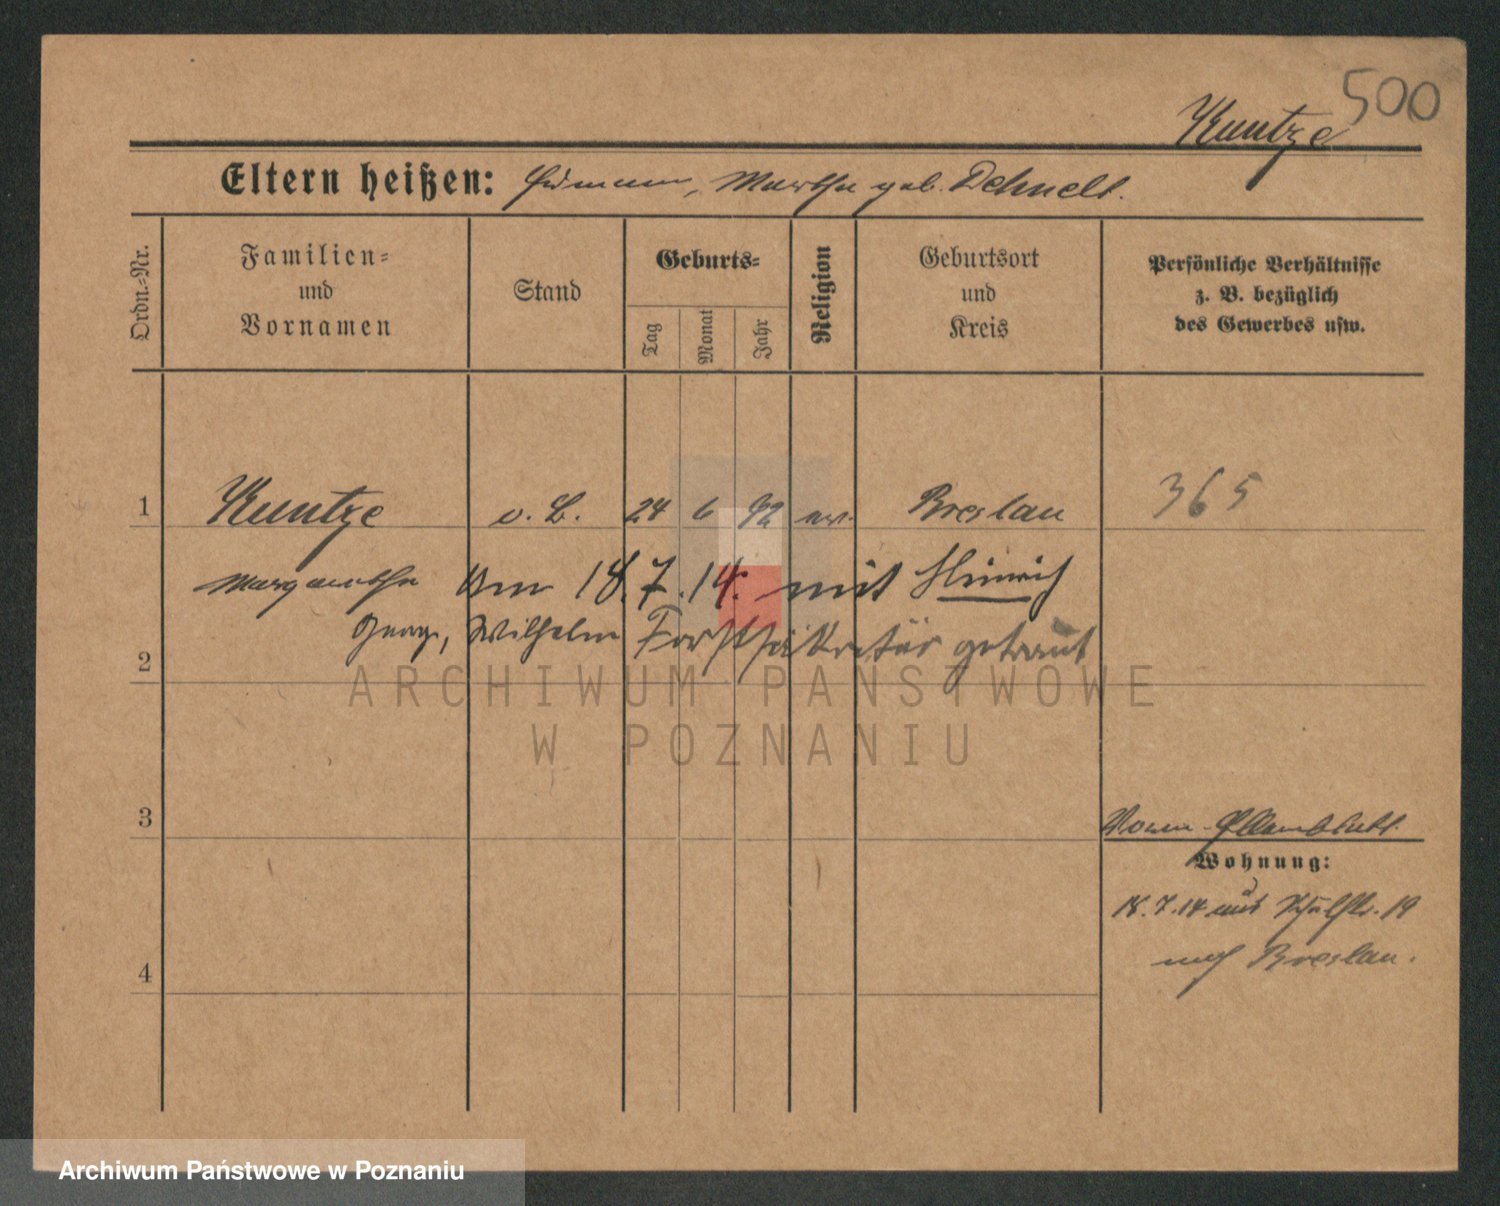 500
Kuntze
Eltern heißen: Hermann, Martha geb. Dehnelt.
Ordn.-Nr.
Familien-
und
Vornamen
Stand
Geburts-
Tag
Monat
Jahr
Religion
Geburtsort
und
Kreis
Persönliche Verhältnisse
z. B. bezüglich
des Gewerbes usw.
1 Kuntze o. B. 24 6 92 ev. Breslau 365
Margarethe Am 18.7.14. mit Hinrich
Georg, Wilhelm Forstsekretär getraut
2
ARCHIWUM PAŃSTWOWE
W POZNANIU
3
Wohnung:
18.7.14 aus Schulstr. 19
4 nach Breslau.
Archiwum Państwowe w Poznaniu